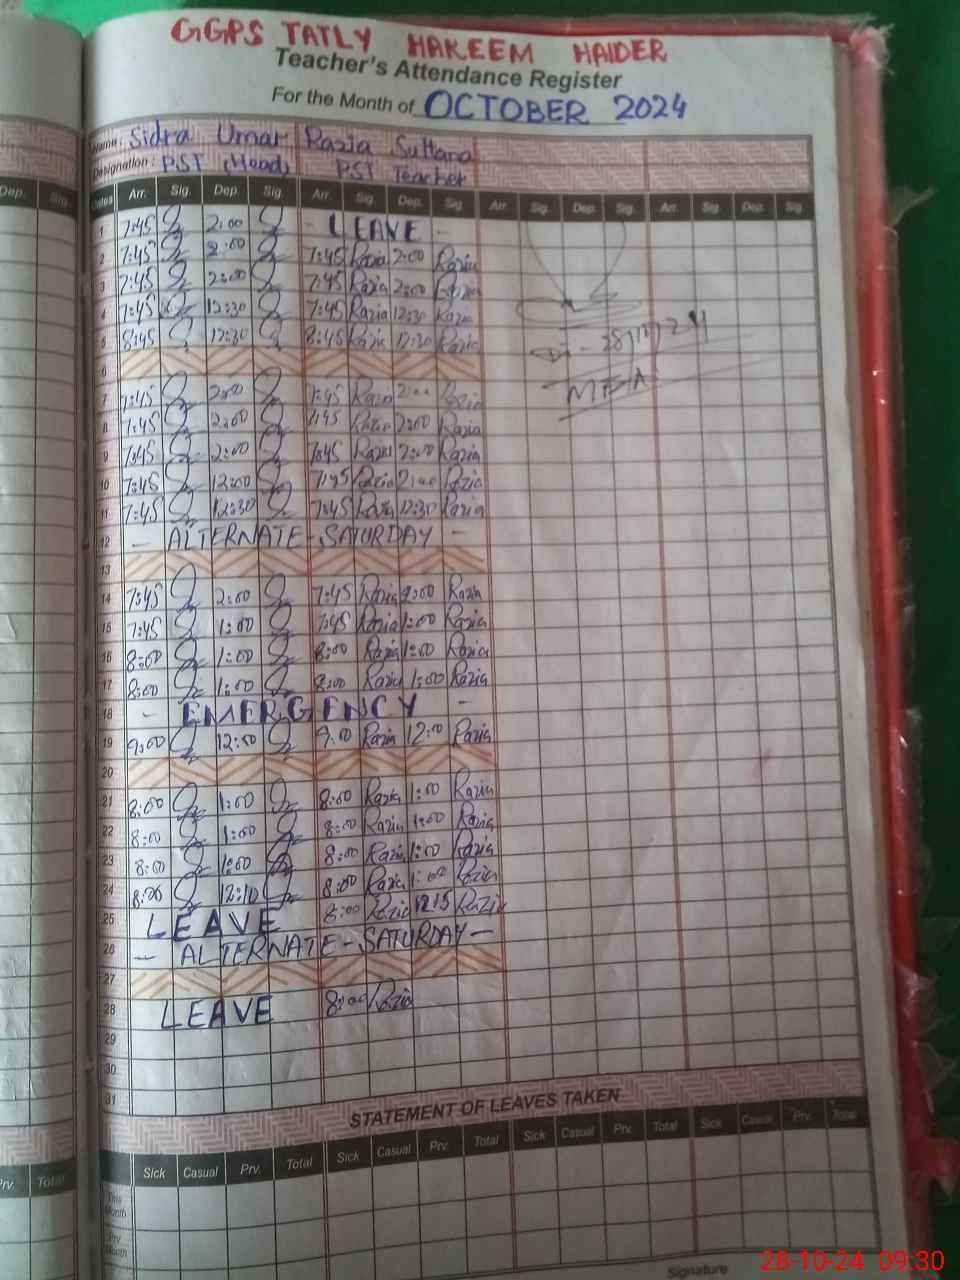 GGPS TATLY HAKEEM HAIDER
Teacher's Attendance Register
For the Month of OCTOBER 2024
Name: Sidra Umar Razia Sultana
Designation: PST (Head) PST Teacher
Dep. Sig. Dates Arr. Sig. Dep. Sig. Arr. Sig. Dep. Sig. Arr. Sig. Dep. Sig. Arr. Sig. Dep. Sig.
1 7:45 2:00 - LEAVE -
2 7:45 2:00 7:45 Razia 2:00 Razia
3 7:45 2:00 7:45 Razia 2:00 Razia
4 7:45 12:30 7:45 Razia 12:30 Razia
5 8:45 12:30 8:45 Razia 12:30 Razia
6
7 7:45 2:00 7:45 Razia 2:00 Razia
8 7:45 2:00 7:45 Razia 2:00 Razia
9 7:45 2:00 7:45 Razia 2:00 Razia
10 7:45 12:00 7:45 Razia 2:00 Razia
11 7:45 12:30 7:45 Razia 12:30 Razia
12 - ALTERNATE - SATURDAY -
13
14 7:45 2:00 7:45 Razia 2:00 Razia
15 7:45 1:00 7:45 Razia 1:00 Razia
16 8:00 1:00 8:00 Razia 1:00 Razia
17 8:00 1:00 8:00 Razia 1:00 Razia
18 - EMERGENCY -
19 9:00 12:00 9:00 Razia 12:00 Razia
20
21 8:00 1:00 8:00 Razia 1:00 Razia
22 8:00 1:00 8:00 Razia 1:00 Razia
23 8:00 1:00 8:00 Razia 1:00 Razia
24 8:00 12:10 8:00 Razia 1:00 Razia
25 LEAVE 8:00 Razia 12:15 Razia
26 - ALTERNATE - SATURDAY -
27
28 LEAVE 8:00 Razia
29
30
31
MEA
STATEMENT OF LEAVES TAKEN
Prv. Total Sick Casual Prv. Total Sick Casual Prv. Total Sick Casual Prv. Total Sick Casual Prv. Total
This Month
Prv. Month
Signature
28-10-24 09:30